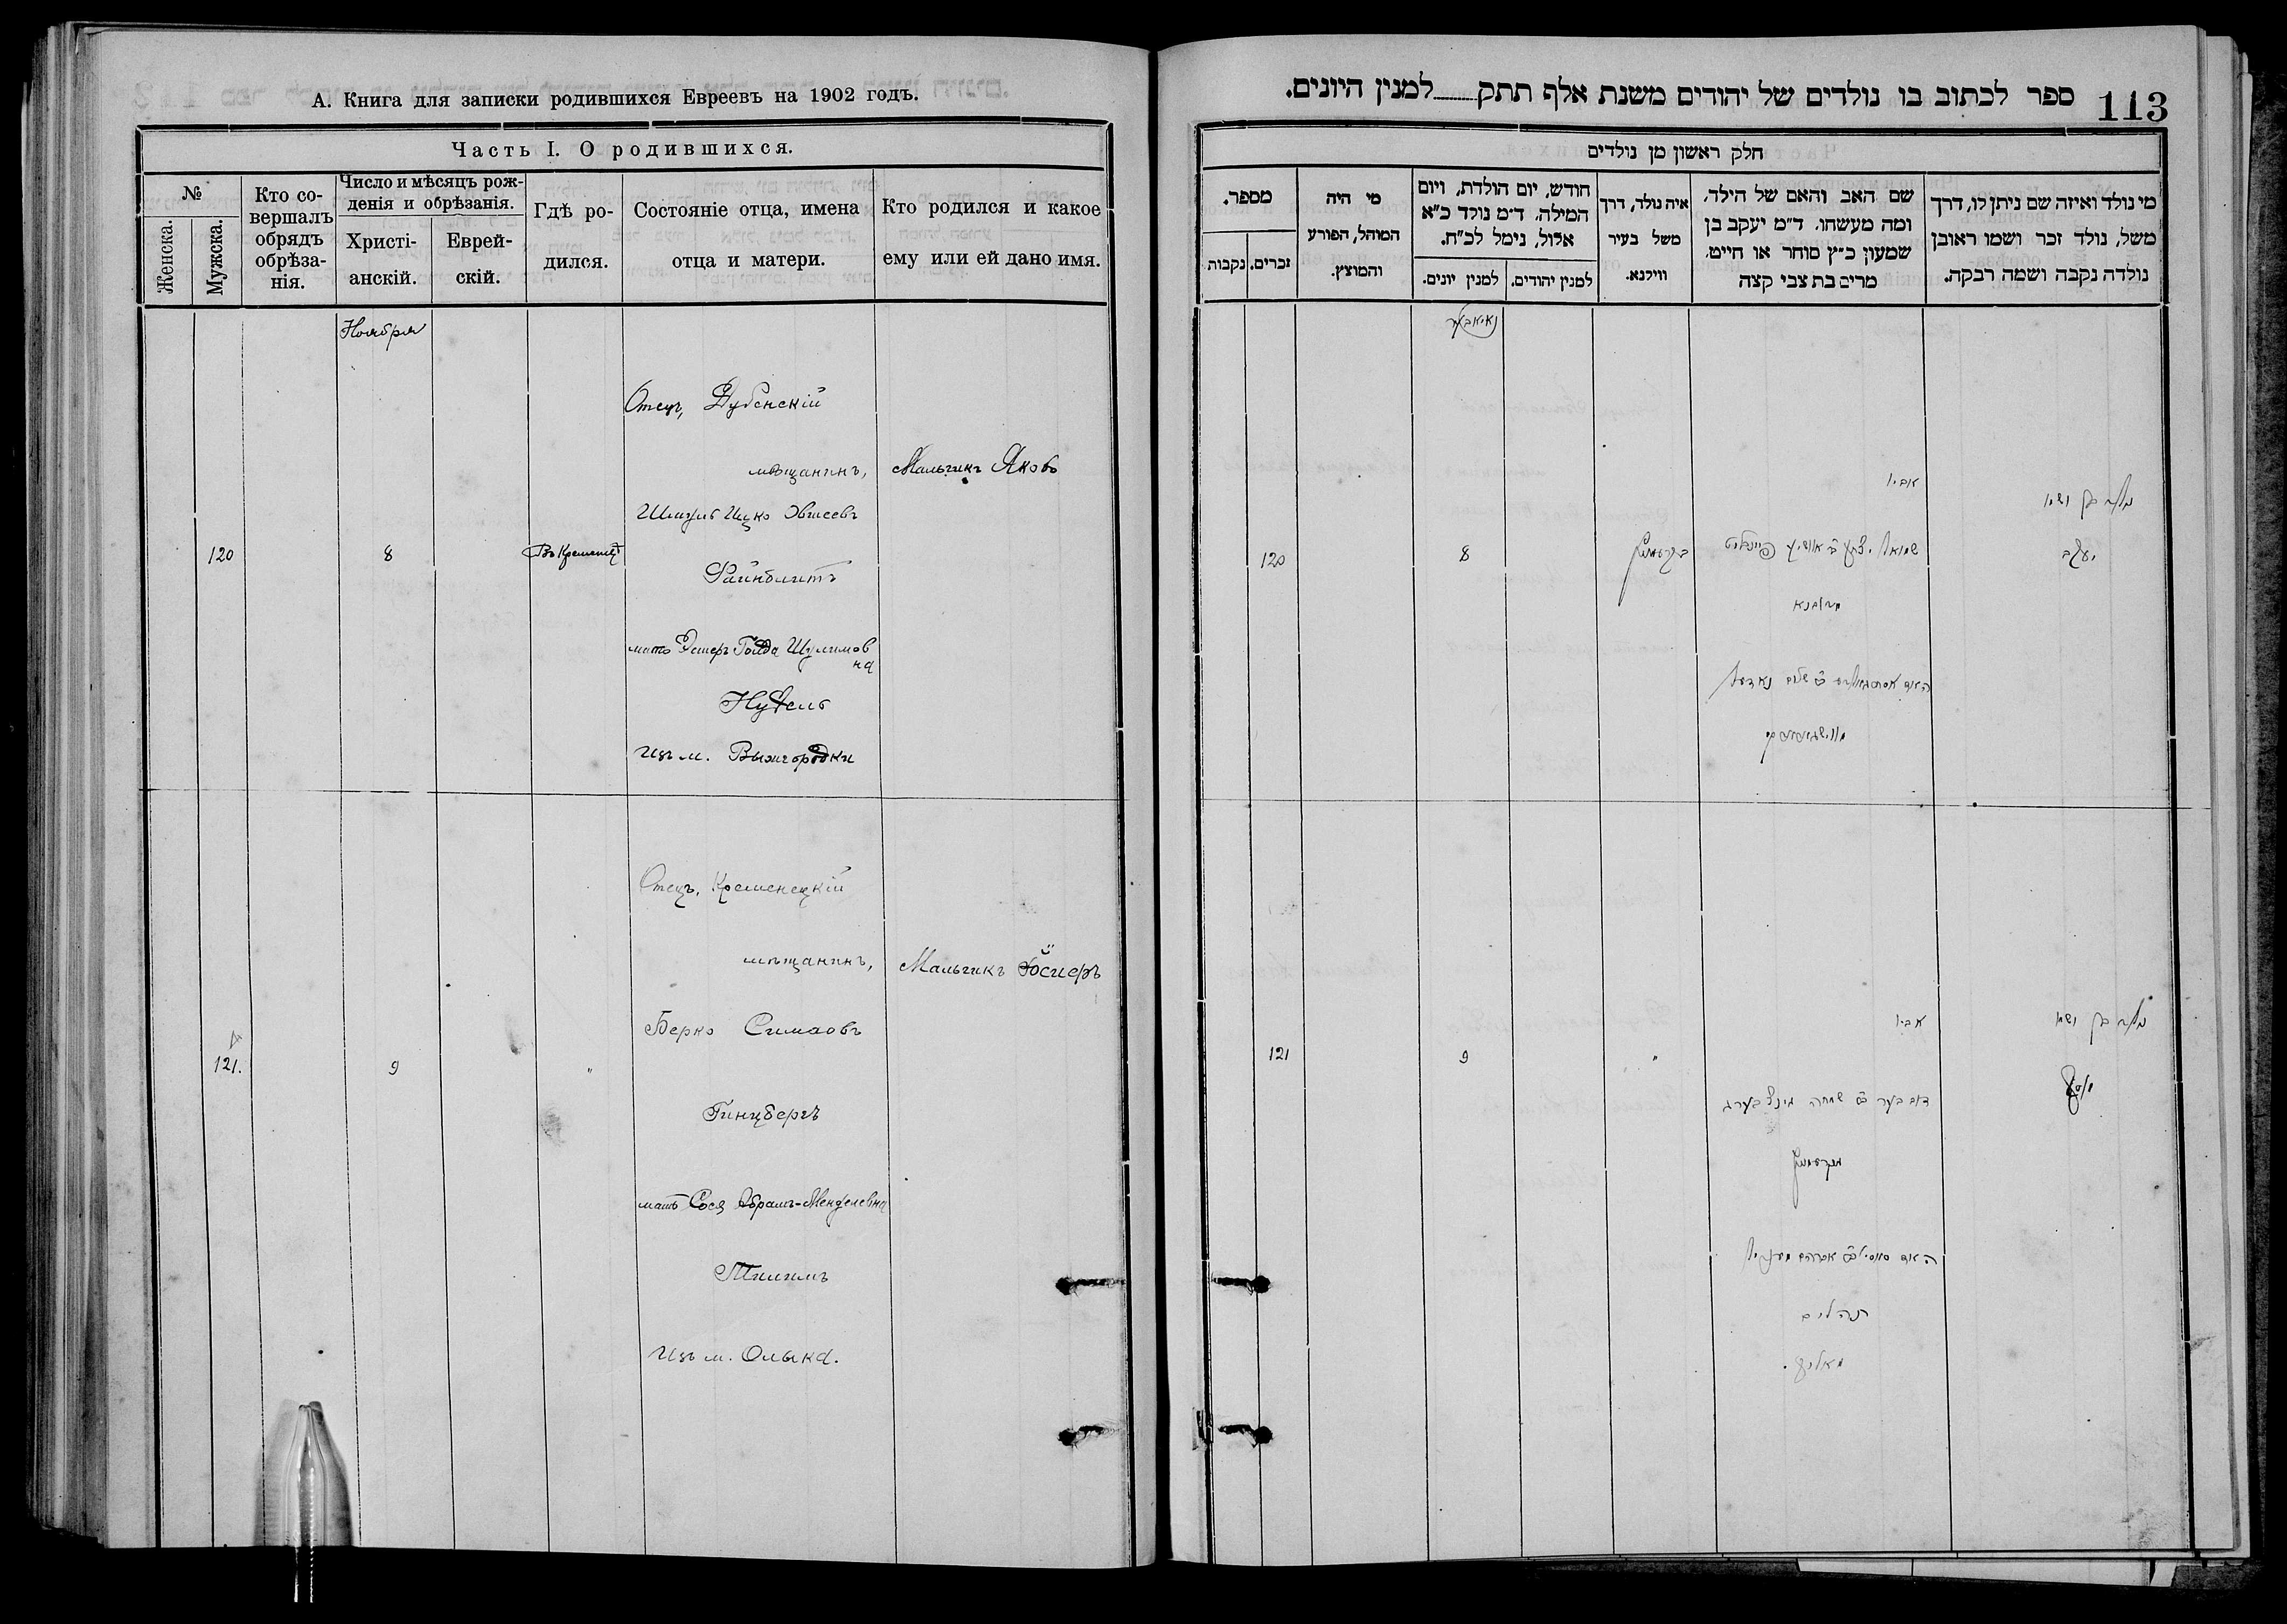 А. Книга для записки родившихся Евреевъ на 1902 годъ.
Часть I. О родившихся.
№
Женска.
Мужска.
Кто со-
вершалъ
обрядъ
обрѣза-
нія.
Число и мѣсяцъ рож-
денія и обрѣзанія.
Христі-
анскій.
Еврей-
скій.
Гдѣ ро-
дился.
Состояніе отца, имена
отца и матери.
Кто родился и какое
ему или ей дано имя.
Ноября
Отецъ, Дубенскій
мѣщанинъ,
Мальчикъ Яковъ
Шмуль Ицко
120
8
Въ Кременцѣ
Файнблитъ
мать Эстеръ Голда Шулимов
на
Нудель
Изъ м. Вышгородки
Отецъ, Кременецкій
мѣщанинъ,
Мальчикъ
Берко
121.
9
"
Гинцбергъ
мать Сося Абрамъ-Менделевна
Тилимъ
Изъ м. Олыка.
113
ספר לכתוב בו נולדים של יהודים משנת אלף תתק למנין היונים.
חלק ראשון מן נולדים
מי נולד ואיזה שם ניתן לו, דרך
משל, נולד זכר ושמו ראובן
נולדה נקבה ושמה רבקה.
שם האב והאם של הילד,
ומה מעשהו. ד״מ יעקב בן
שמעון כ״ץ סוחר או חייט,
מרים בת צבי קצה
איה נולד, דרך
משל בעיר
ווילנא.
חודש, יום הולדת, ויום
המילה, ד״מ נולד כ״א
אלול, נימל לכ״ח.
למנין יהודים.
למנין יונים.
מי היה
המוהל, הפורע
והמוצץ.
מספר.
זכרים.
נקבות
נאיאבער
אביו
נולד בן ושמו
יעקב
שמואל יצחק
בקרעמניץ
8
120
מדובנא
נולד בן ושמו
יוסף
אביו
"
9
121
דוב בער ב״ר שמחה גינצבערג
מקרעמניץ
תהלים
מאליק.